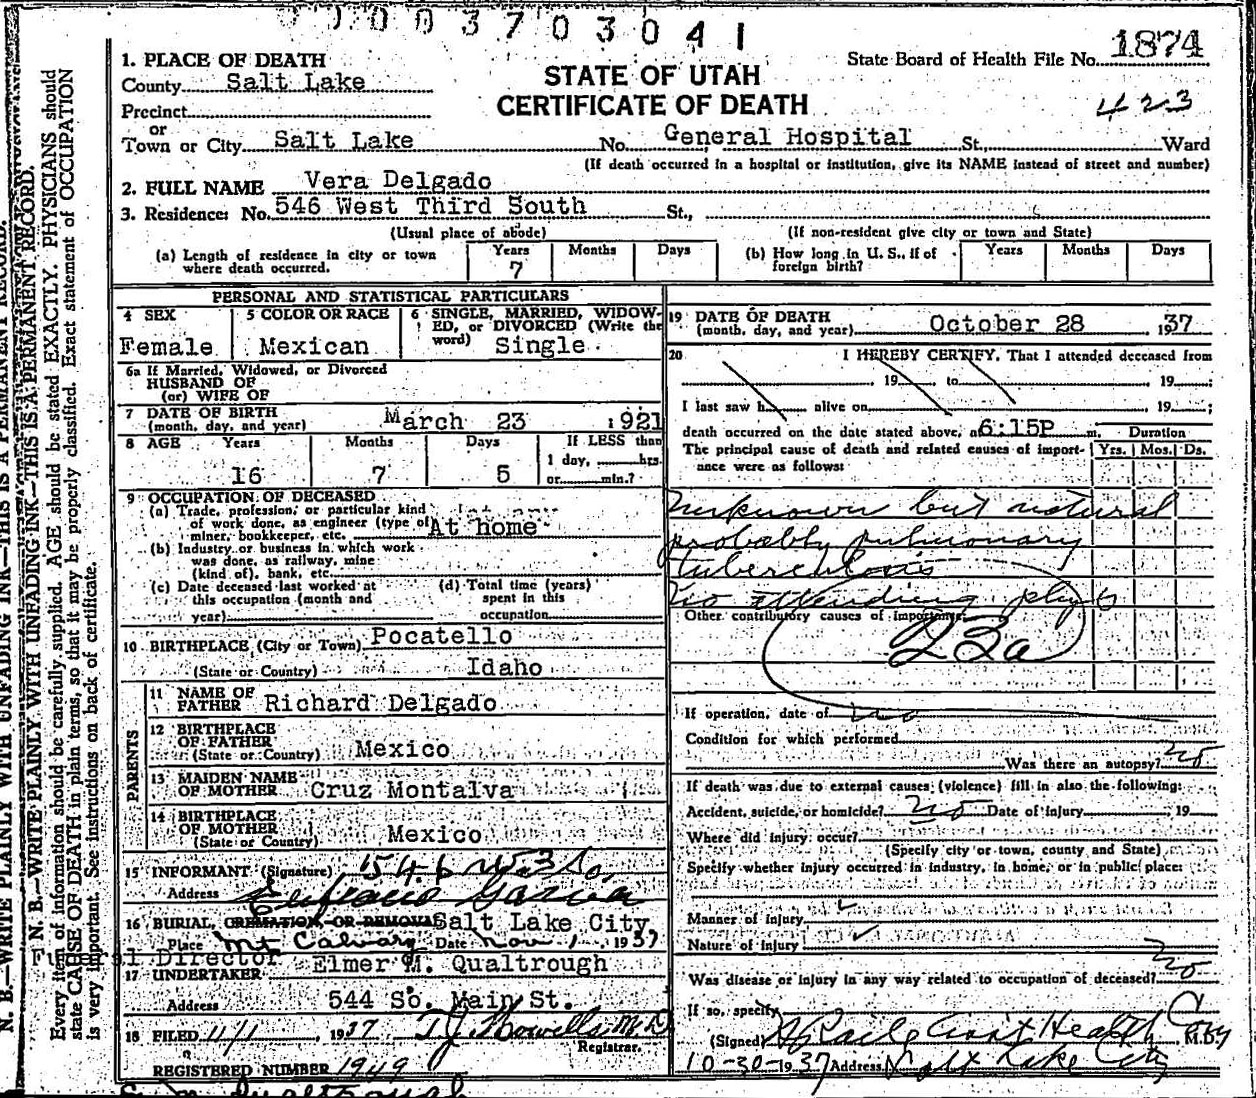 003703041
1874
State Board of Health File No.
423
STATE OF UTAH
CERTIFICATE OF DEATH
1. PLACE OF DEATH
County Salt Lake
Precinct
or
Town or City Salt Lake No. General Hospital St., Ward
(If death occurred in a hospital or institution, give its NAME instead of street and number)
2. FULL NAME Vera Delgado
3. Residence: No. 546 West Third South St.,
(Usual place of abode) (If non-resident give city or town and State)
(a) Length of residence in city or town where death occurred. Years 7 Months Days
(b) How long in U. S., if of foreign birth? Years Months Days
PERSONAL AND STATISTICAL PARTICULARS
4 SEX Female
5 COLOR OR RACE Mexican
6 SINGLE, MARRIED, WIDOWED, or DIVORCED (Write the word) Single
6a If Married, Widowed, or Divorced
HUSBAND OF
(or) WIFE OF
7 DATE OF BIRTH
(month, day, and year) March 23 1921
8 AGE Years Months Days If LESS than
16 7 5 1 day, hrs.
or min.?
9 OCCUPATION OF DECEASED
(a) Trade, profession, or particular kind
of work done, as engineer (type of
miner, bookkeeper, etc. At home
(b) Industry or business in which work
was done, as railway, mine
(kind of), bank, etc.
(c) Date deceased last worked at
this occupation (month and
year)
(d) Total time (years)
spent in this
occupation
10 BIRTHPLACE (City or Town) Pocatello
(State or Country) Idaho
PARENTS
11 NAME OF
FATHER Richard Delgado
12 BIRTHPLACE
OF FATHER
(State or Country) Mexico
13 MAIDEN NAME
OF MOTHER Cruz Montalva
14 BIRTHPLACE
OF MOTHER
(State or Country) Mexico
15 INFORMANT (Signature) 546 W 3 So.
Address Garcia
16 BURIAL, CREMATION, OR REMOVAL Salt Lake City,
Place Mt Calvary Date Nov 1, 1937
Funeral Director
17 UNDERTAKER Elmer M. Qualtrough
Address 544 So. Main St.
18 FILED 11/1, 1937 T.J. Howells M.D
Registrar.
REGISTERED NUMBER 1949
19 DATE OF DEATH
(month, day, and year) October 28 1937
20 I HEREBY CERTIFY, That I attended deceased from
, 19 to , 19 ;
I last saw h alive on , 19 ;
death occurred on the date stated above, at 6:15P m.
Duration
The principal cause of death and related causes of importance were as follows: Yrs. Mos. Ds.
Unknown but natural
probably pulmonary
tuberculosis
No attending phys
Other contributory causes of importance:
23a
If operation, date of no
Condition for which performed
Was there an autopsy? no
If death was due to external causes (violence) fill in also the following:
Accident, suicide, or homicide? no Date of injury , 19
Where did injury occur?
(Specify city or town, county and State)
Specify whether injury occurred in industry, in home, or in public place:
Manner of injury
Nature of injury
Was disease or injury in any way related to occupation of deceased? no
If so, specify
(Signed) Health M.D.
10-30-1937 Address Salt Lake City
N. B.—WRITE PLAINLY WITH UNFADING INK—THIS IS A PERMANENT RECORD.
N. B.—WRITE PLAINLY WITH UNFADING INK—THIS IS A PERMANENT RECORD.
Every item of information should be carefully supplied. AGE should be stated EXACTLY. PHYSICIANS should
state CAUSE OF DEATH in plain terms, so that it may be properly classified. Exact statement of OCCUPATION
is very important. See instructions on back of certificate.